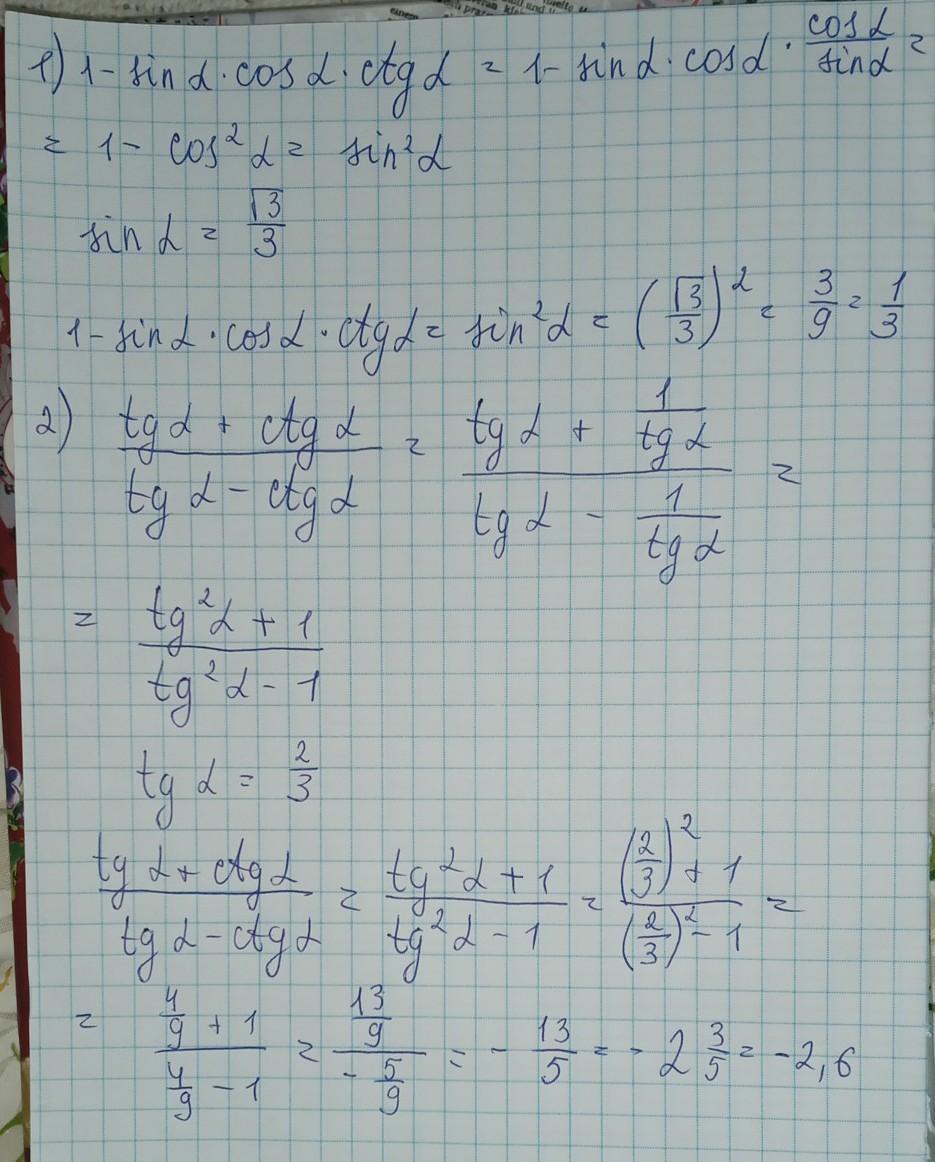 1) 1 - sin α · cos α · ctg α = 1 - sin α · cos α · cos α / sin α =
= 1 - cos² α = sin² α
sin α = √3 / 3
1 - sin α · cos α · ctg α = sin² α = (√3 / 3)² = 3/9 = 1/3
2) (tg α + ctg α) / (tg α - ctg α) = (tg α + 1 / tg α) / (tg α - 1 / tg α) =
= (tg² α + 1) / (tg² α - 1)
tg α = 2/3
(tg α + ctg α) / (tg α - ctg α) = (tg² α + 1) / (tg² α - 1) = ((2/3)² + 1) / ((2/3)² - 1) =
= (4/9 + 1) / (4/9 - 1) = (13/9) / (-5/9) = - 13/5 = - 2 3/5 = -2,6